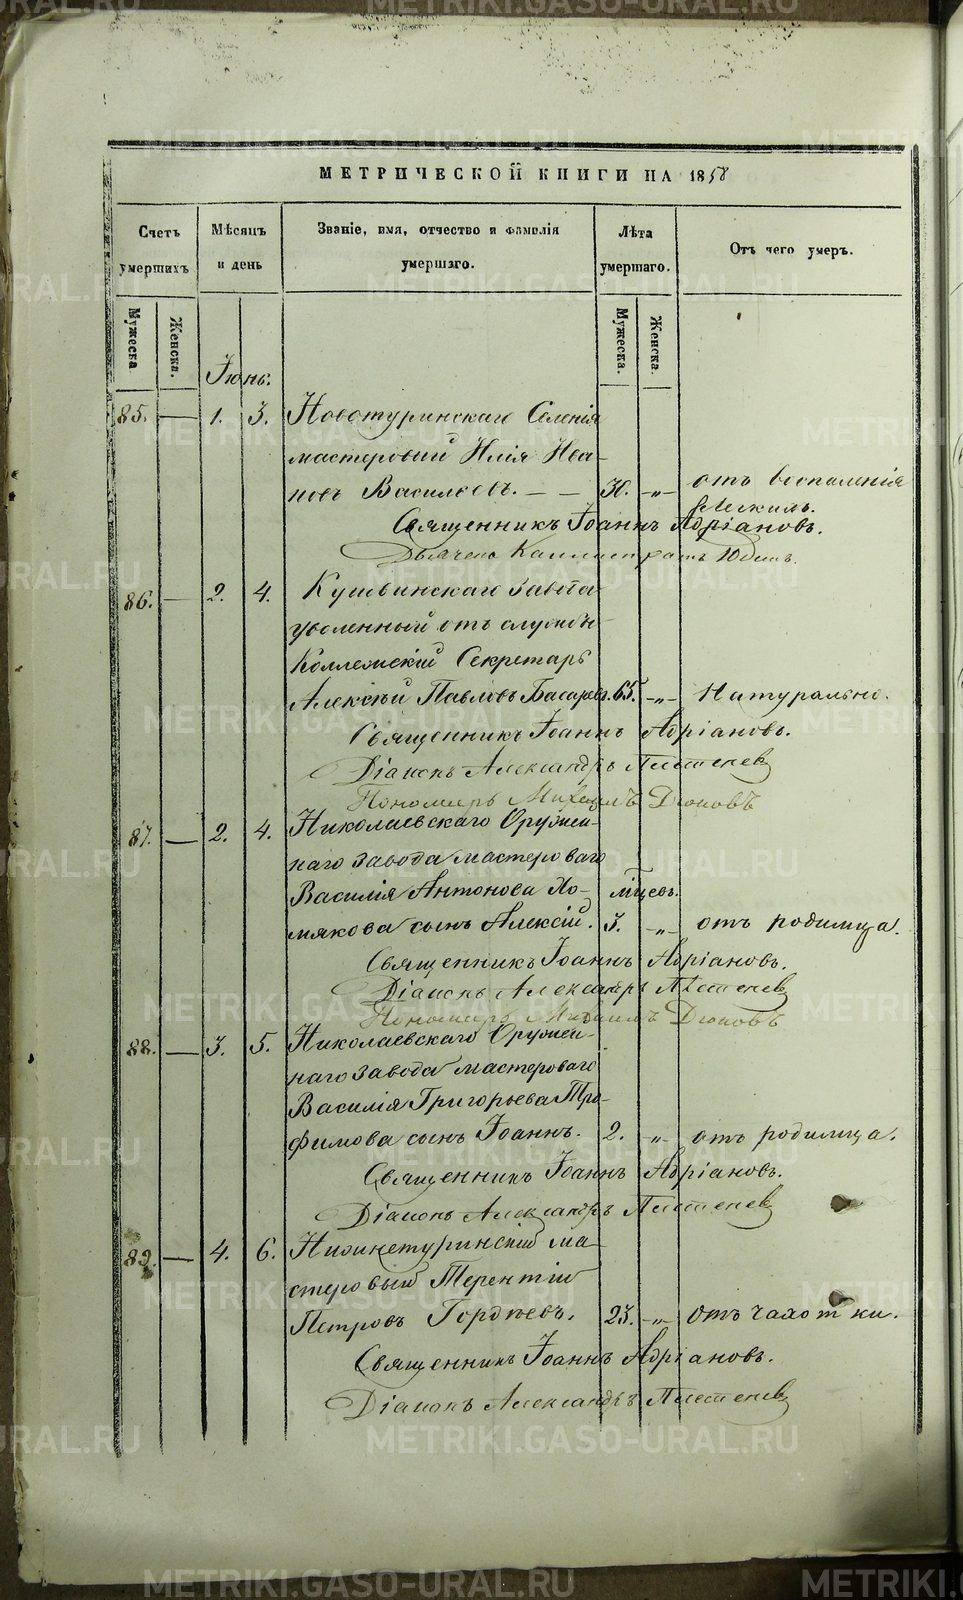 МЕТРИЧЕСКОЙ КНИГИ НА 1858
Счетъ умершихъ
Мѣсяцъ и день
Званіе, имя, отчество и фамилія умершаго.
Лѣта умершаго.
Отъ чего умеръ.
Мужеска
Женска.
Мужеска.
Женска.
Іюнь.
85. — 1. 3. Новотуринскаго Селенія
мастеровый Илія Ива-
новъ Васильевъ. — — 30. -„- отъ воспаленія
легкихъ.
Священникъ Іоаннъ Адріановъ.
Дьячекъ Каллистратъ
86. — 2. 4. Кушвинскаго Завода
уволенный отъ службы
Коллежскій Секретарь
Алексѣй Павловъ 65. -„- Натурально.
Священникъ Іоаннъ Адріановъ.
Діаконъ Александръ
Пономарь Михаилъ
87. — 2. 4. Николаевскаго Оружей-
наго завода мастероваго
Василія Антонова Хо- мѣсяцевъ.
мякова сынъ Алексій. 3. -„- отъ родимца.
Священникъ Іоаннъ Адріановъ.
Діаконъ Александръ
Пономарь Михаилъ
88. — 3. 5. Николаевскаго Оружей-
наго завода мастероваго
Василія Григорьева Тро-
фимова сынъ Іоаннъ. 2. „ отъ родимца.
Священникъ Іоаннъ Адріановъ.
Діаконъ Александръ
89. — 4. 6. Нижнетуринскій ма-
стеровый Терентій
Петровъ Гордѣевъ. 23. -„- отъ чахотки.
Священникъ Іоаннъ Адріановъ.
Діаконъ Александръ
METRIKI.GASO-URAL.RU